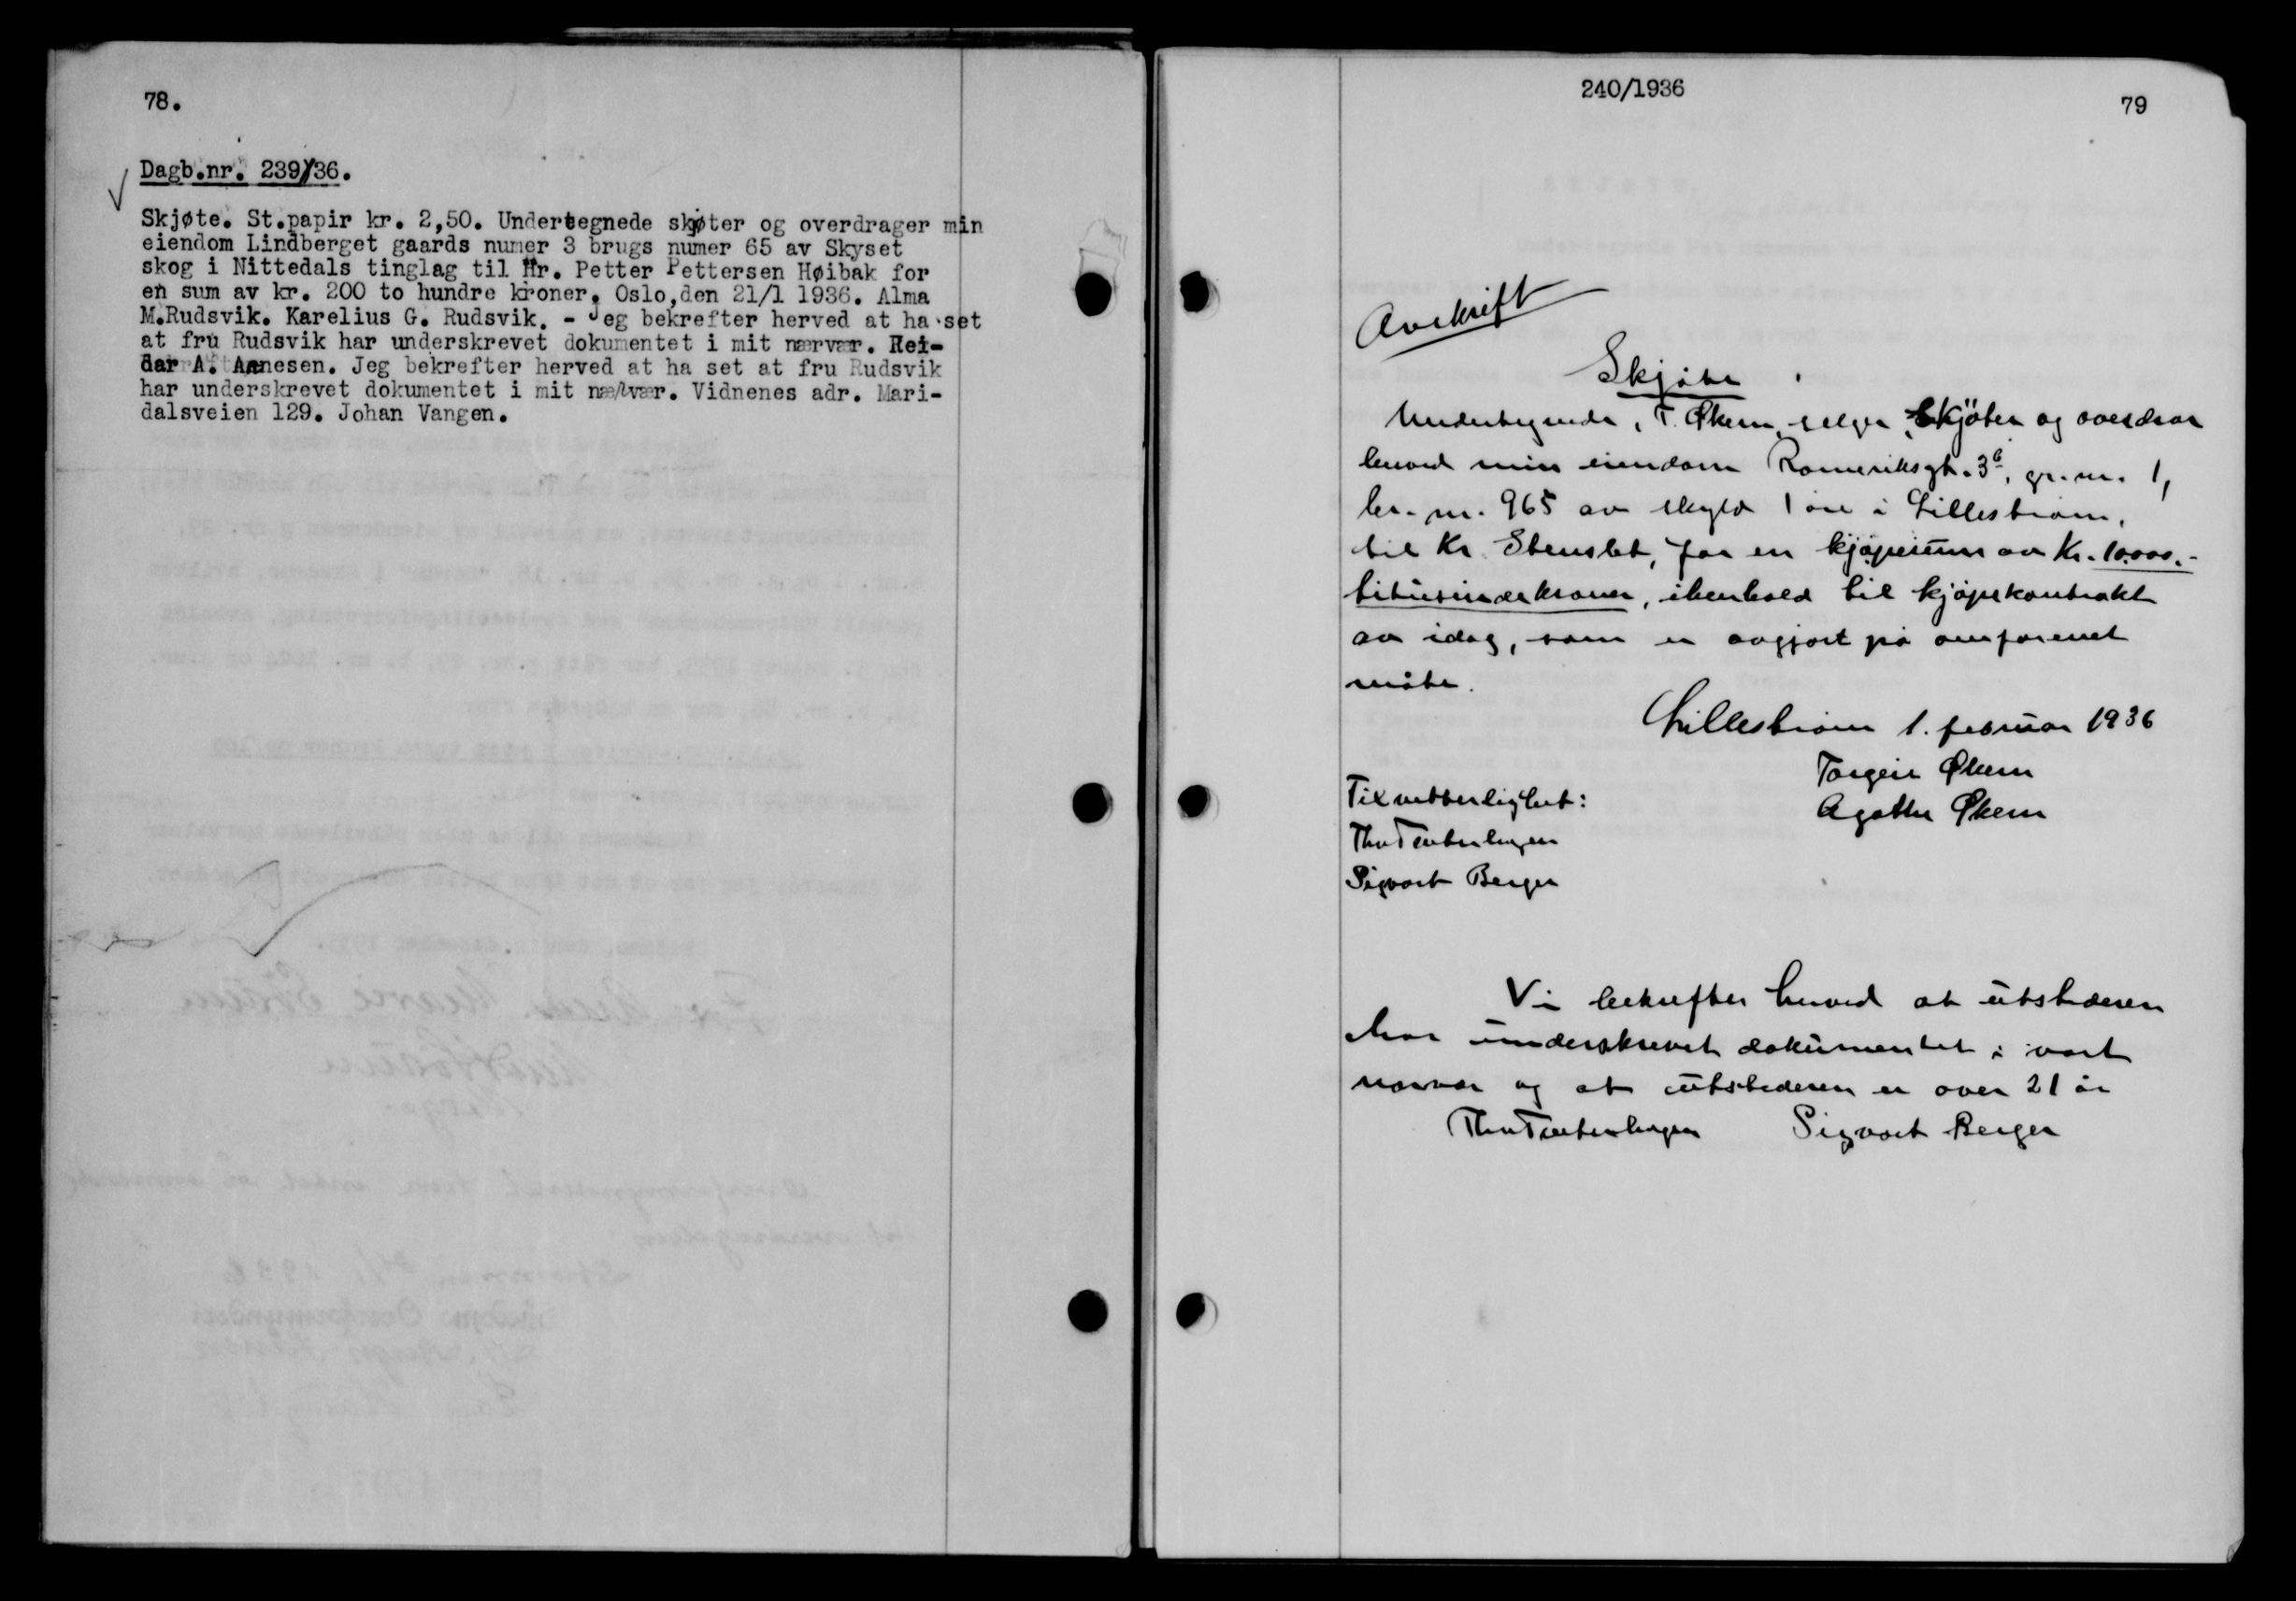 78.
Dagb.nr. 239/36.
Skjøte. St.papir kr. 2,50. Undertegnede skjøter og overdrager min
eiendom Lindberget gaards numer 3 brugs numer 65 av Skyset
skog i Nittedals tinglag til Hr. Petter Pettersen Høibak for
en sum av kr. 200 to hundre kroner. Oslo,den 21/1 1936. Alma
M.Rudsvik. Karelius G. Rudsvik. - Jeg bekrefter herved at ha set
at fru Rudsvik har underskrevet dokumentet i mit nærvær. Rei-
dar A. Aanesen. Jeg bekrefter herved at ha set at fru Rudsvik
har underskrevet dokumentet i mit nærvær. Vidnenes adr. Mari-
dalsveien 129. Johan Vangen.
240/1936
79
Avskrift
Skjøte
Undertegnede, T. Økern, selger, skjøter og overdrar
herved min eiendom Romeriksgt. 3b, gr. nr. 1,
br. nr. 965 av skyld 1 øre i Lillestrøm,
til Kr. Stenslet, for en kjøpesum av Kr. 10.000.-
titusindekroner, ihenhold til kjøpekontrakt
av idag, som er avgjort på omforenet
måte.
Lillestrøm 1. februar 1936
Torgeir Økern
Agathe Økern
Til vitterlighet:
Sigvart Berger
Vi bekrefter herved at utstederen
har underskrevet dokumentet i vort
nærvær og at utstederen er over 21 år
Sigvart Berger